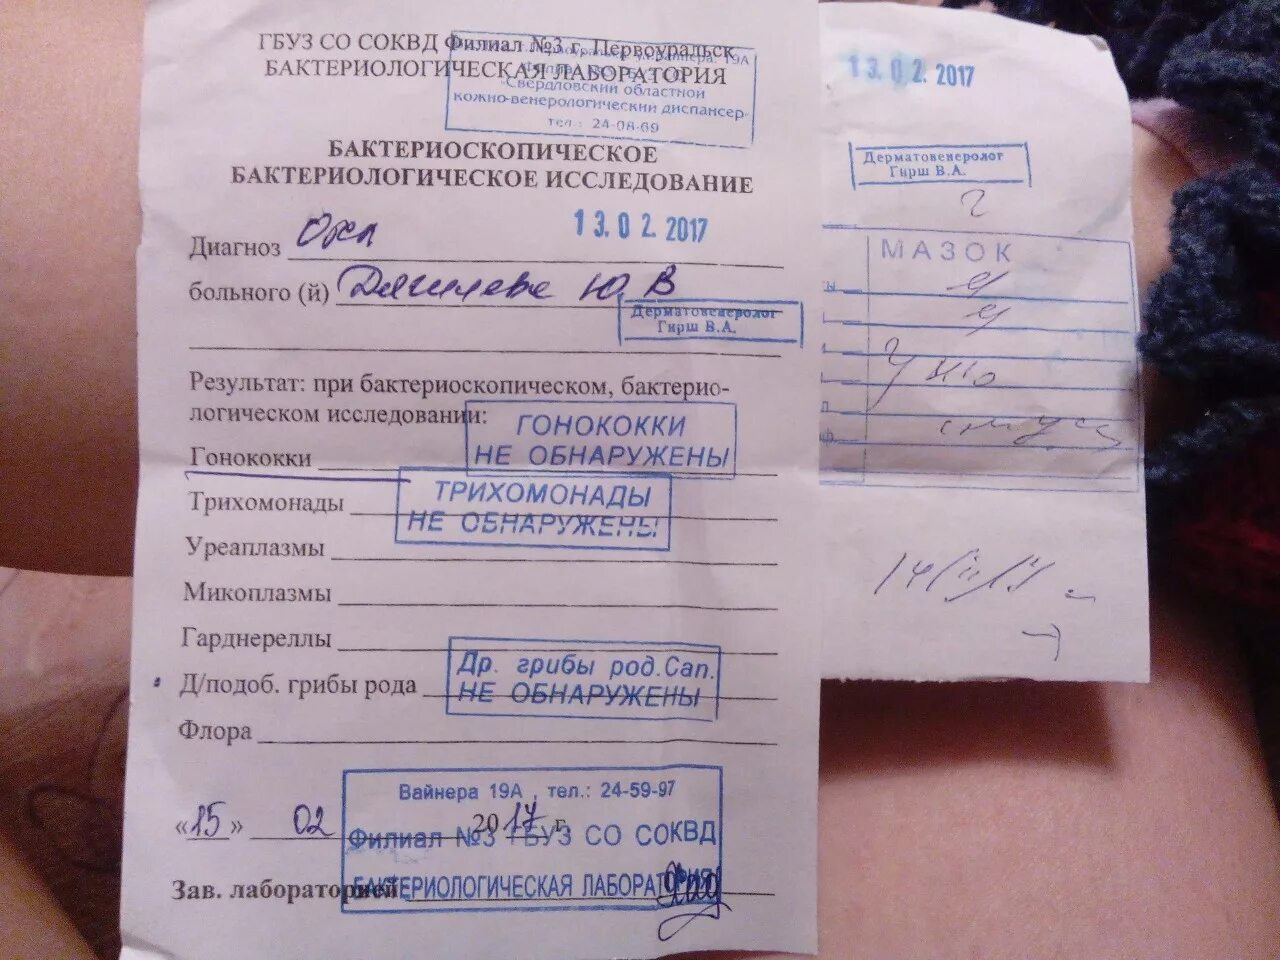 ГБУЗ СО СОКВД Филиал №3 г. Первоуральск
БАКТЕРИОЛОГИЧЕСКАЯ ЛАБОРАТОРИЯ
19А
Свердловский областной
кожно-венерологический диспансер
тел.: 24-08-69
БАКТЕРИОСКОПИЧЕСКОЕ
БАКТЕРИОЛОГИЧЕСКОЕ ИССЛЕДОВАНИЕ
13.02.2017
Диагноз
больного (й) Ю. В
Дерматовенеролог
Гирш В.А.
Результат: при бактериоскопическом, бактерио-
логическом исследовании:
ГОНОКОККИ
НЕ ОБНАРУЖЕНЫ
Гонококки
ТРИХОМОНАДЫ
НЕ ОБНАРУЖЕНЫ
Трихомонады
Уреаплазмы
Микоплазмы
Гарднереллы
Др. грибы род.Сап.
НЕ ОБНАРУЖЕНЫ
Д/подоб. грибы рода
Флора
Вайнера 19А , тел.: 24-59-97
«15» 02 2017 г.
Филиал №3 ГБУЗ СО СОКВД
БАКТЕРИОЛОГИЧЕСКАЯ ЛАБОРАТОРИЯ
Зав. лабораторией
13.02.2017
Дерматовенеролог
Гирш В.А.
МАЗОК